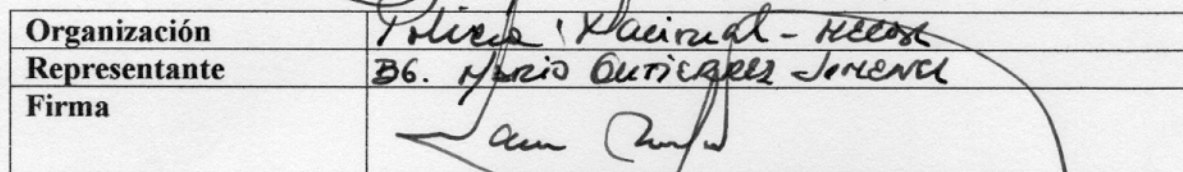 Organización Policia Nacional -
Representante BG. MARIO GUTIERREZ JIMENEZ
Firma